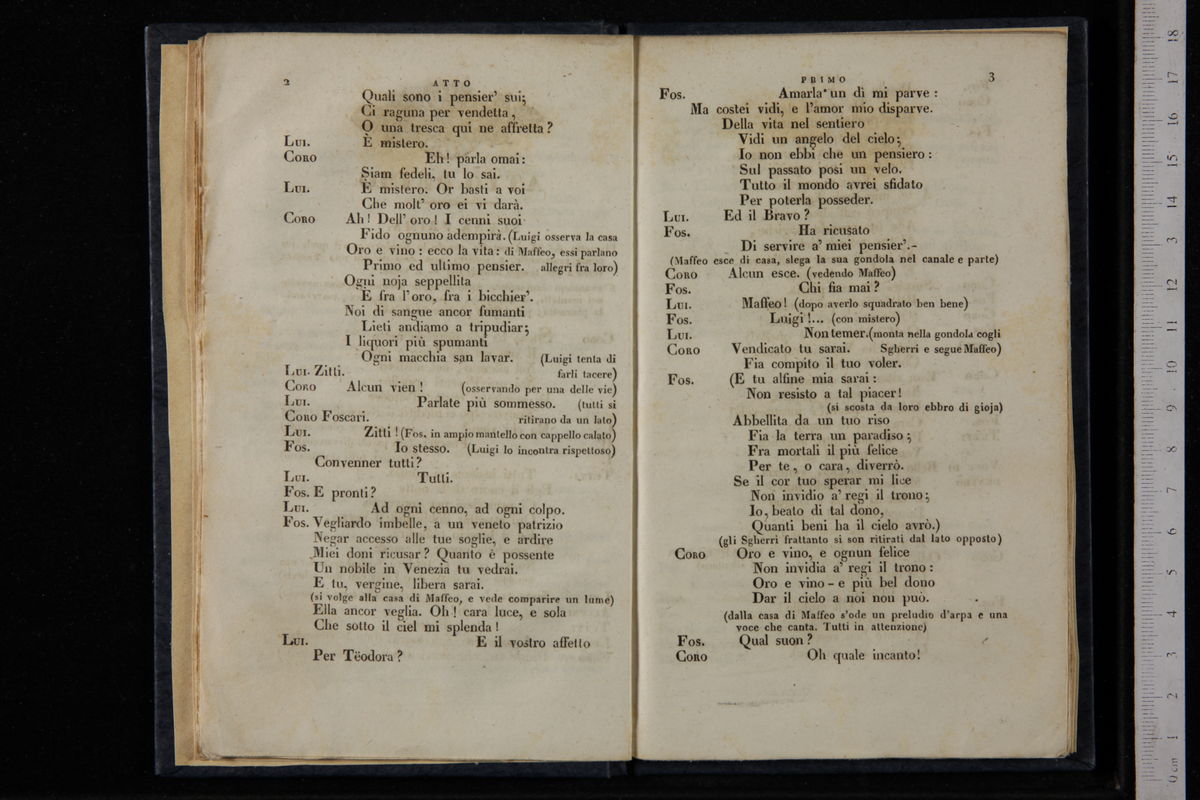 2 ATTO
Quali sono i pensier' sui;
Ci raguna per vendetta,
O una tresca qui ne affretta?
LUI. È mistero.
CORO Eh! parla omai:
Siam fedeli, tu lo sai.
LUI. È mistero. Or basti a voi
Che molt' oro ei vi darà.
CORO Ah! Dell' oro! I cenni suoi
Fido ognuno adempirà. (Luigi osserva la casa
Oro e vino: ecco la vita: di Maffeo, essi parlano
Primo ed ultimo pensier. allegri fra loro)
Ogni noja seppellita
E fra l'oro, fra i bicchier'.
Noi di sangue ancor fumanti
Lieti andiamo a tripudiar;
I liquori più spumanti
Ogni macchia san lavar. (Luigi tenta di
LUI. Zitti. farli tacere)
CORO Alcun vien! (osservando per una delle vie)
LUI. Parlate più sommesso. (tutti si
CORO Foscari. ritirano da un lato)
LUI. Zitti! (Fos. in ampio mantello con cappello calato)
FOS. Io stesso. (Luigi lo incontra rispettoso)
Convenner tutti?
LUI. Tutti.
FOS. E pronti?
LUI. Ad ogni cenno, ad ogni colpo.
FOS. Vegliardo imbelle, a un veneto patrizio
Negar accesso alle tue soglie, e ardire
Miei doni ricusar? Quanto è possente
Un nobile in Venezia tu vedrai.
E tu, vergine, libera sarai.
(si volge alla casa di Maffeo, e vede comparire un lume)
Ella ancor veglia. Oh! cara luce, e sola
Che sotto il ciel mi splenda!
LUI. E il vostro affetto
Per Tëodora?
PRIMO 3
FOS. Amarla un dì mi parve:
Ma costei vidi, e l'amor mio disparve.
Della vita nel sentiero
Vidi un angelo del cielo;
Io non ebbi che un pensiero:
Sul passato posi un velo.
Tutto il mondo avrei sfidato
Per poterla posseder.
LUI. Ed il Bravo?
FOS. Ha ricusato
Di servire a' miei pensier'.-
(Maffeo esce di casa, slega la sua gondola nel canale e parte)
CORO Alcun esce. (vedendo Maffeo)
FOS. Chi fia mai?
LUI. Maffeo! (dopo averlo squadrato ben bene)
FOS. Luigi!... (con mistero)
LUI. Non temer. (monta nella gondola cogli
CORO Vendicato tu sarai. Sgherri e segue Maffeo)
Fia compito il tuo voler.
FOS. (E tu alfine mia sarai:
Non resisto a tal piacer!
(si scosta da loro ebbro di gioja)
Abbellita da un tuo riso
Fia la terra un paradiso;
Fra mortali il più felice
Per te, o cara, diverrò.
Se il cor tuo sperar mi lice
Non invidio a' regi il trono;
Io, beato di tal dono,
Quanti beni ha il cielo avrò.)
(gli Sgherri frattanto si son ritirati dal lato opposto)
CORO Oro e vino, e ognun felice
Non invidia a' regi il trono:
Oro e vino - e più bel dono
Dar il cielo a noi non può.
(dalla casa di Maffeo s'ode un preludio d'arpa e una
voce che canta. Tutti in attenzione)
FOS. Qual suon?
CORO Oh quale incanto!
0 cm 1 2 3 4 5 6 7 8 9 10 11 12 13 14 15 16 17 18